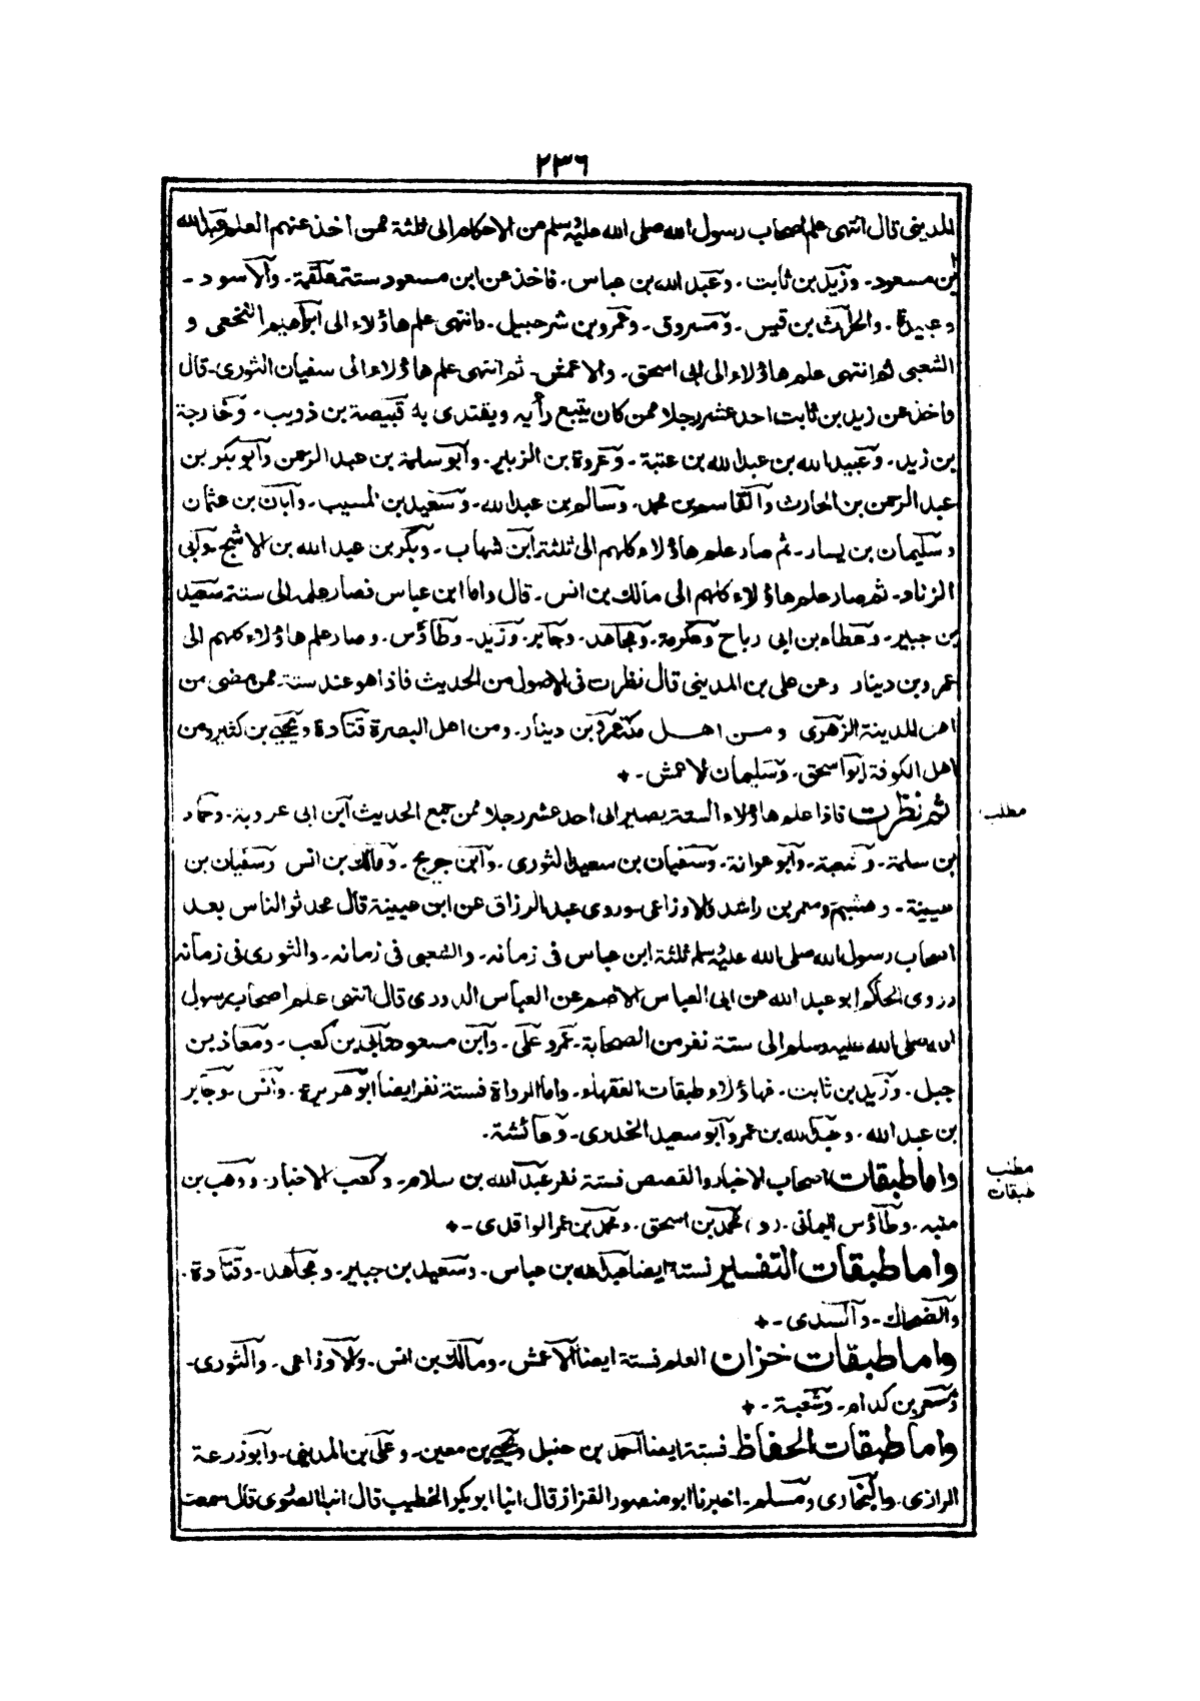 ٢٣٦
المديني قال انتهى علم اصحاب رسول الله صلى الله عليه وسلم من الاحكام الى ثلثة ممن اخذ عنهم العلم عبد الله
بن مسعود۔ وزيد بن ثابت۔ وعبد الله بن عباس۔ فاخذ عن ابن مسعود ستة علقمة۔ والاسود۔
وعبيدة۔ والحارث بن قيس۔ ومسروق۔ وعمرو بن شرحبيل۔ وانتهى علم هاؤلاء الى ابراهيم النخعي و
الشعبي ثم انتهى علم هاؤلاء الى ابى اسحق۔ والاعمش۔ ثم انتهى علم هاؤلاء الى سفيان الثورى۔ قال
واخذ عن زيد بن ثابت احد عشر رجلا ممن كان يتبع رأيه ويقتدى به قبيصة بن ذويب۔ وخارجة
بن زيد۔ وعبيد الله بن عبد الله بن عتبة۔ وعروة بن الزبير۔ وابو سلمة بن عبد الرحمن وابو بكر بن
عبد الرحمن بن الحارث والقاسم بن محمد۔ وسالم بن عبد الله۔ وسعيد بن المسيب۔ وابان بن عثمان
وسليمان بن يسار۔ ثم صار علم هاؤلاء كلهم الى ثلثة ابن شهاب۔ وبكير بن عبد الله بن الاشج وابى
الزناد۔ ثم صار علم هاؤلاء كلهم الى مالك بن انس۔ قال واما ابن عباس فصار علمه الى ستة سعيد
بن جبير۔ وعطاء بن ابى رباح وعكرمة۔ ومجاهد۔ وجابر۔ وزيد۔ وطاؤس۔ وصار علم هاؤلاء كلهم الى
عمرو بن دينار وعن على بن المدينى قال نظرت فى الاصول من الحديث فاذا هو عند ستة ممن مضى من
اهل المدينة الزهرى ومن اهل مكة عمرو بن دينار۔ ومن اهل البصرة قتادة ويحيى بن كثير ومن
اهل الكوفة ابو اسحق۔ وسليمان الاعمش۔
ثم نظرت فاذا علم هاؤلاء الستة يصير الى احد عشر رجلا ممن جمع الحديث ابن ابى عروبة۔ وحماد
مطلب
بن سلمة۔ وشعبة۔ وابو عوانة۔ وسفيان بن سعيد الثورى۔ وابن جريج۔ ومالك بن انس وسفيان بن
عيينة۔ وهشيم ومعمر بن راشد والاوزاعى۔ وروى عبد الرزاق عن ابن عيينة قال محدثو الناس بعد
اصحاب رسول الله صلى الله عليه وسلم ثلثة ابن عباس فى زمانه۔ والشعبى فى زمانه۔ والثورى فى زمانه
وروى الحاكم ابو عبد الله عن ابى العباس الاصم عن العباس الدورى قال انتهى علم اصحاب رسول
الله صلى الله عليه وسلم الى ستة نفر من الصحابة۔ عمر وعلى۔ وابن مسعود وابى بن كعب۔ ومعاذ بن
جبل۔ وزيد بن ثابت۔ فهاؤلاء طبقات الفقهاء۔ واما الرواة فستة نفر ايضا ابو هريرة۔ وانس۔ وجابر
بن عبد الله۔ وعبد الله بن عمر وابو سعيد الخدرى۔ وعائشة۔
واما طبقات اصحاب الاخبار والقصص فستة نفر عبد الله بن سلام۔ وكعب الاحبار۔ ووهب بن
مطلب
طبقات
منبه۔ وطاؤس اليمانى۔ (و) محمد بن اسحق۔ ومحمد بن عمر الواقدى۔
واما طبقات التفسير فستة ايضا عبد الله بن عباس۔ وسعيد بن جبير۔ ومجاهد۔ وقتادة۔
والضحاك۔ والسدى۔
واما طبقات خزان العلم فستة ايضا الاعمش۔ ومالك بن انس۔ والاوزاعى۔ والثورى۔
ومسعر بن كدام۔ وشعبة۔
واما طبقات الحفاظ فستة ايضا احمد بن حنبل ويحيى بن معين۔ وعلى بن المدينى۔ وابو زرعة
الرازى۔ والبخارى ومسلم۔ اخبرنا ابو منصور القزاز قال انبا ابو بكر الخطيب قال انبا الصورى قال سمعت